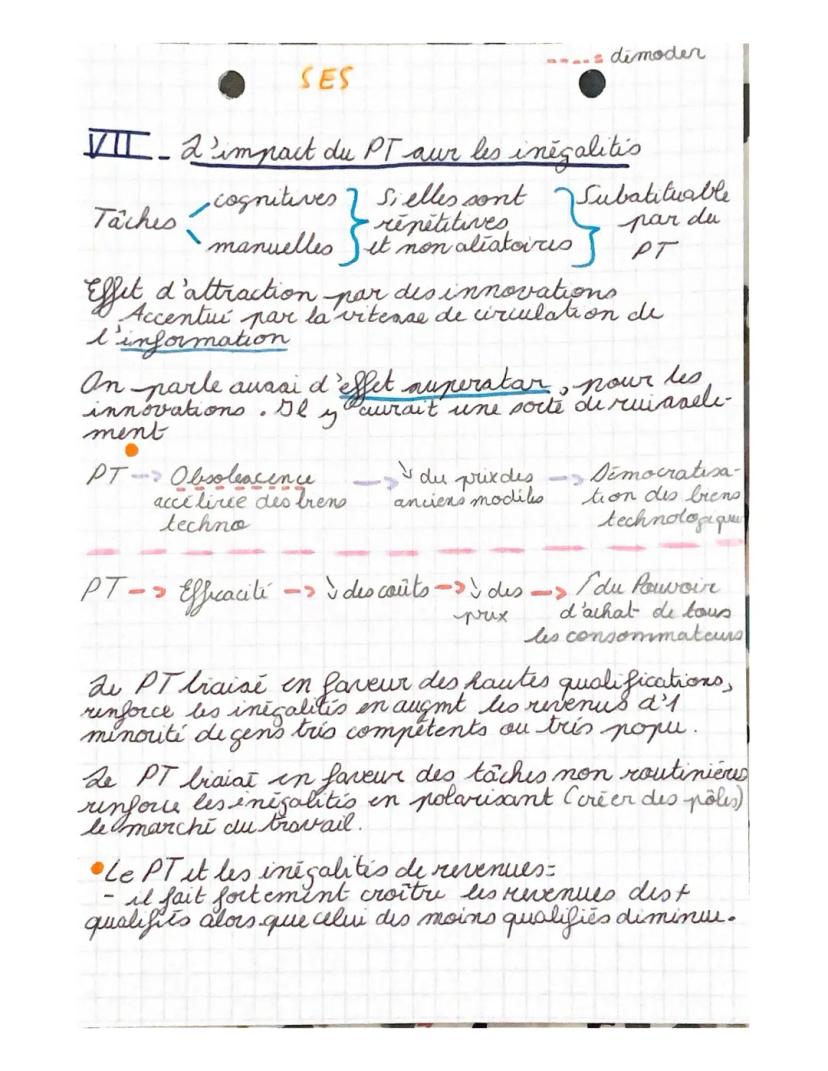 ---- = démoder
SES
VII - L'impact du PT sur les inégalités
Tâches
cognitives
manuelles
Si elles sont
répétitives
et non aléatoires
Substituable
par du
PT
Effet d'attraction par des innovations
Accentué par la vitesse de circulation de
l'information
On parle aussi d'effet superstar, pour les
innovations. Il y aurait une sorte de ruisselle-
ment
PT --> Obsolescence
accélirée des biens
techno
--> ↘ du prix des
anciens modèles
--> Démocratisa-
tion des biens
technologique
PT --> Efficacité --> ↘ des coûts --> ↘ des
prix
--> ↗ du Pouvoir
d'achat de tous
les consommateurs
Le PT biaisé en faveur des hautes qualifications,
renforce les inégalités en augmt les revenus d'1
minorité de gens très compétents ou très popu.
Le PT biaisé en faveur des tâches non routinières
renforce les inégalités en polarisant (créer des pôles)
le marché du travail.
• Le PT et les inégalités de revenues =
- il fait fortement croître les revenues des +
qualifiés alors que celui des moins qualifiés diminue.